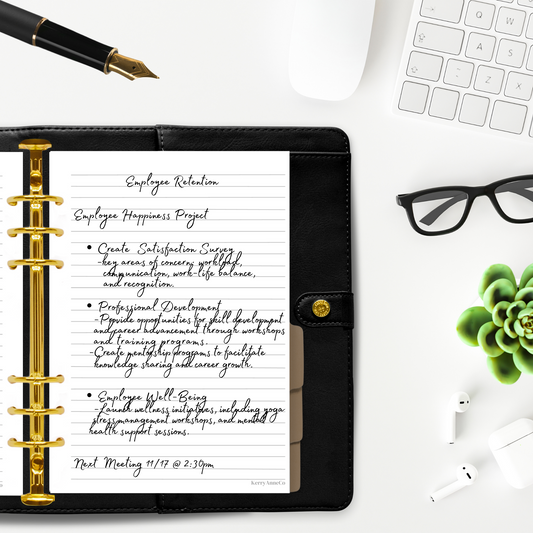 Employee Retention
Employee Happiness Project
• Create Satisfaction Survey
-key areas of concern: workload,
communication, work-life balance,
and recognition.
• Professional Development
-Provide opportunities for skill development
and career advancement through workshops
and training programs.
-Create mentorship programs to facilitate
knowledge sharing and career growth.
• Employee Well-Being
-Launch wellness initiatives, including yoga
stress management workshops, and mental
health support sessions.
Next Meeting 11/17 @ 2:30pm
KerryAnneCo